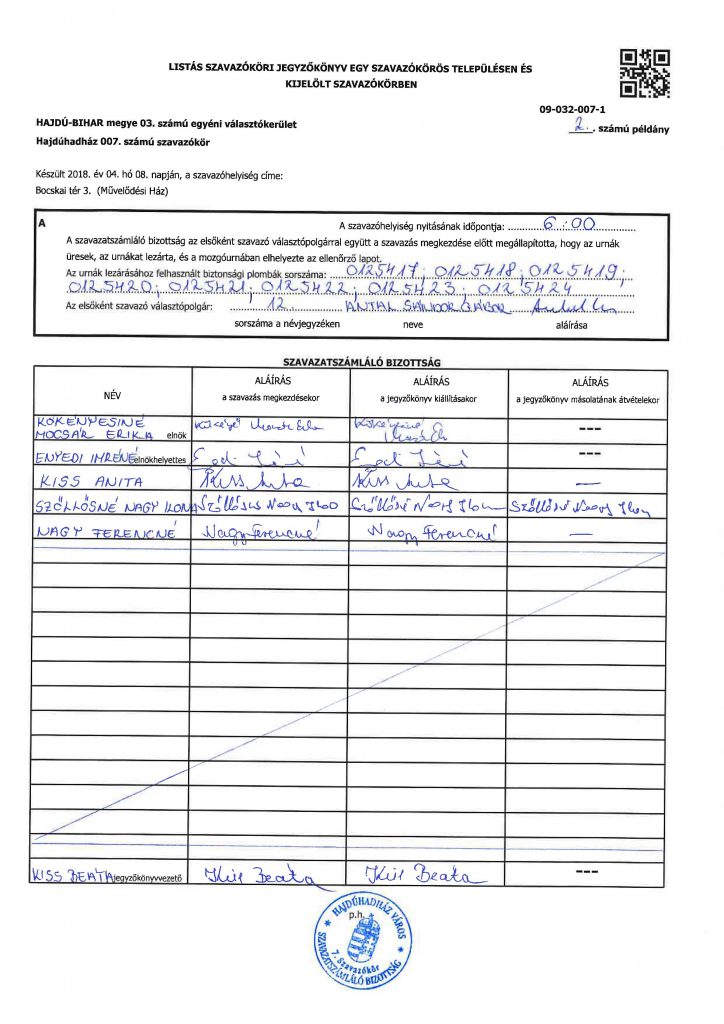 LISTÁS SZAVAZÓKÖRI JEGYZŐKÖNYV EGY SZAVAZÓKÖRÖS TELEPÜLÉSEN ÉS
KIJELÖLT SZAVAZÓKÖRBEN
09-032-007-1
HAJDÚ-BIHAR megye 03. számú egyéni választókerület
2. . számú példány
Hajdúhadház 007. számú szavazókör
Készült 2018. év 04. hó 08. napján, a szavazóhelyiség címe:
Bocskai tér 3. (Művelődési Ház)
A
A szavazóhelyiség nyitásának időpontja: 6:00
A szavazatszámláló bizottság az elsőként szavazó választópolgárral együtt a szavazás megkezdése előtt megállapította, hogy az urnák
üresek, az urnákat lezárta, és a mozgóurnában elhelyezte az ellenőrző lapot.
Az urnák lezárásához felhasznált biztonsági plombák sorszáma: 0125417; 0125418; 0125419;
0125420; 0125421; 0125422; 0125423; 0125424
Az elsőként szavazó választópolgár: 12. ANTAL SÁNDOR GÁBOR
sorszáma a névjegyzéken neve aláírása
SZAVAZATSZÁMLÁLÓ BIZOTTSÁG
NÉV
ALÁÍRÁS
a szavazás megkezdésekor
ALÁÍRÁS
a jegyzőkönyv kiállításakor
ALÁÍRÁS
a jegyzőkönyv másolatának átvételekor
KÖKÉNYESINÉ
MOCSÁR ERIKA elnök
---
ENYEDI IMRÉNÉ elnökhelyettes
---
KISS ANITA Kiss Anita Kiss Anita —
SZŐLLŐSNÉ NAGY ILONA Szőllősné Nagy Ilona Szőllősné Nagy Ilona Szőllősné Nagy Ilona
NAGY FERENCNÉ Nagy Ferencné Nagy Ferencné —
KISS BEÁTA jegyzőkönyvvezető Kiss Beáta Kiss Beáta ---
p.h.
HAJDÚHADHÁZ VÁROS
7. Szavazókör
SZAVAZATSZÁMLÁLÓ BIZOTTSÁG